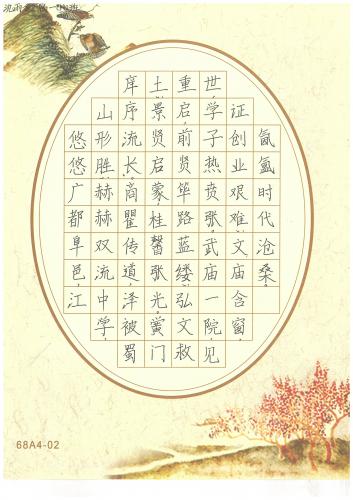 悠悠广都阜邑,江
山形胜,赫赫双流中学,
庠序流长,商瞿传道,泽被蜀
土,景贤启蒙,桂馨张光,黉门
重启,前贤筚路蓝缕,弘文救
世,学子热贲张,武庙一院,见
证创业艰难,文庙含窗,
氤氲时代沧桑,
68A4-02